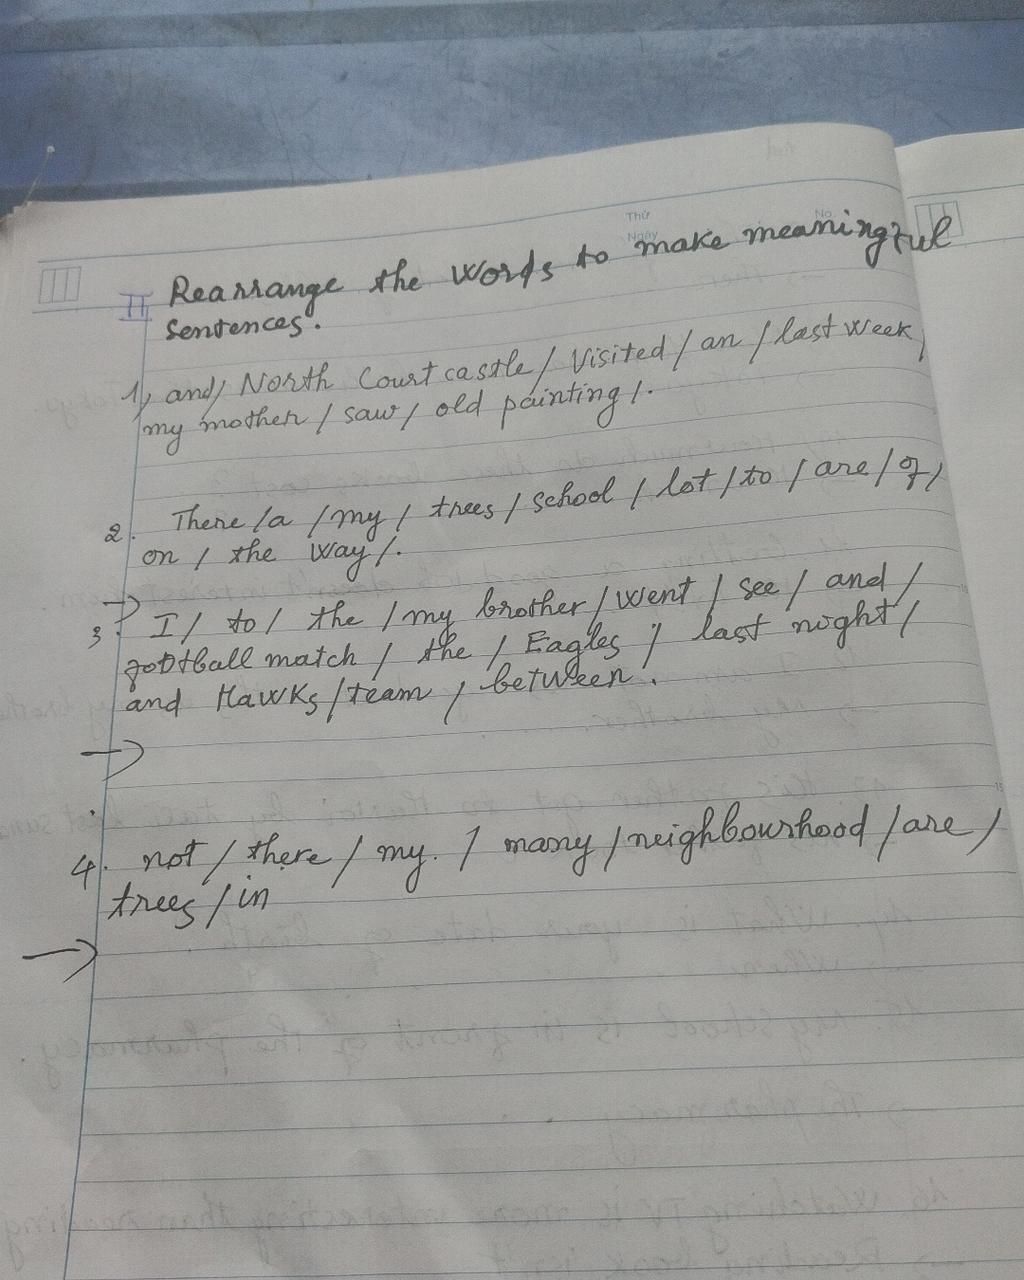 Thứ
Ngày
No.
II Rearrange the words to make meaningful
sentences.
1, and/ North Court castle/ Visited/ an / last week/
my mother / saw/ old painting/.
2. There /a /my / trees / school / lot / to / are / of /
on / the way/.
3. I / to / the / my brother / went / see / and /
football match / the / Eagles / last noght /
and Hawks / team / between.
4. not / there / my. / many / neighbourhood / are /
trees / in